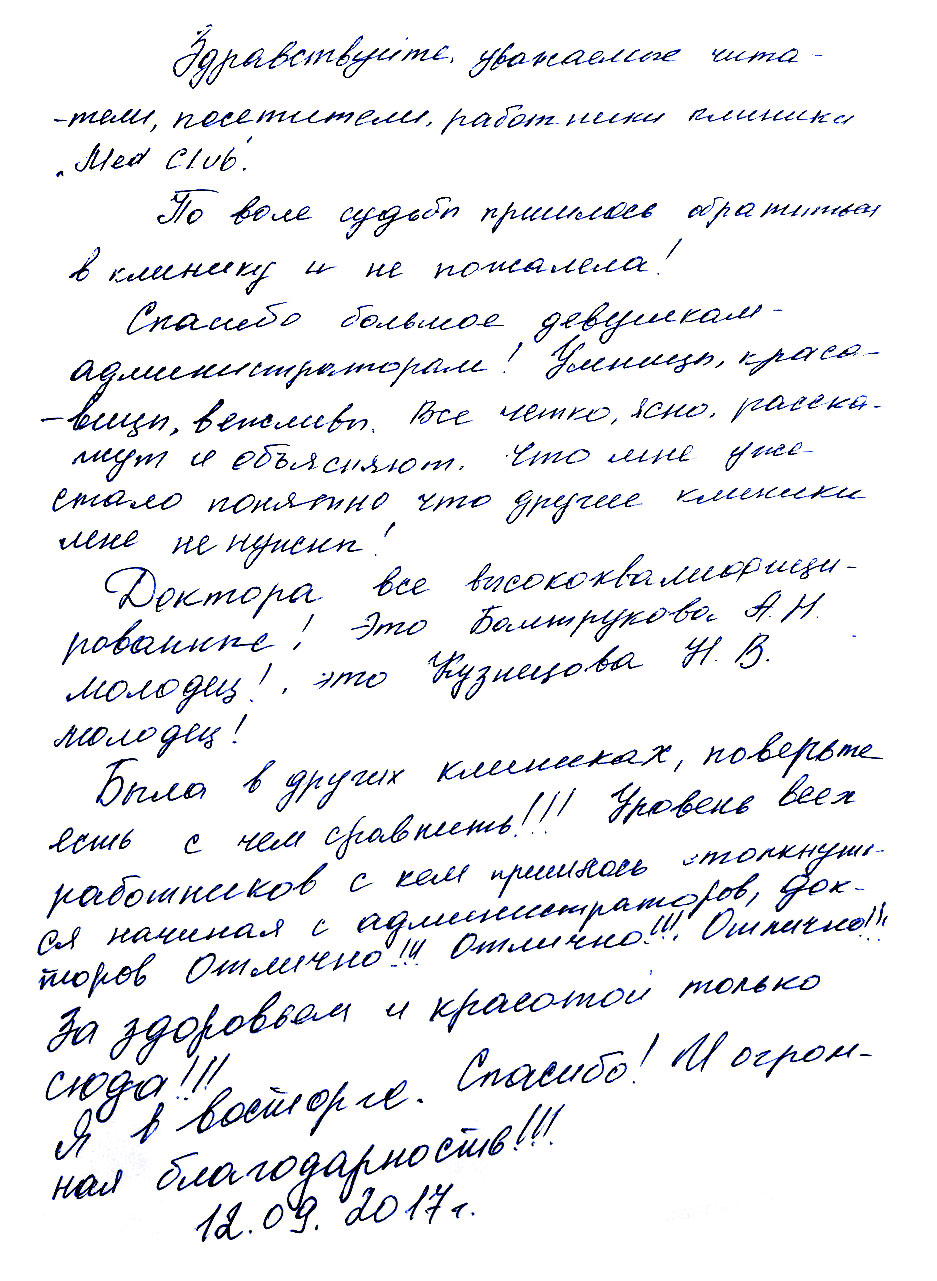 Здравствуйте, уважаемые чита-
-тели, посетители, работники клиники
„Med Club".
По воле судьбы пришлось обратиться
в клинику и не пожалела!
Спасибо большое девушкам-
администраторам! Умницы, краса-
-вицы, вежливы. Все четко, ясно, расска-
жут и объясняют. Что мне уже
стало понятно что другие клиники
мне не нужны!
Доктора все высококвалифици-
рованные! Это Балтрукова А.Н.
молодец!, это Кузнецова Н.В.
молодец!
Была в других клиниках, поверьте
есть с чем сравнить!!! Уровень всех
работников с кем пришлось столкнуть-
ся начиная с администраторов, док-
торов Отлично!!! Отлично!!! Отлично!!!
За здоровьем и красотой только
сюда!!!
Я в восторге. Спасибо! И огром-
ная благодарность!!!
12.09.2017г.